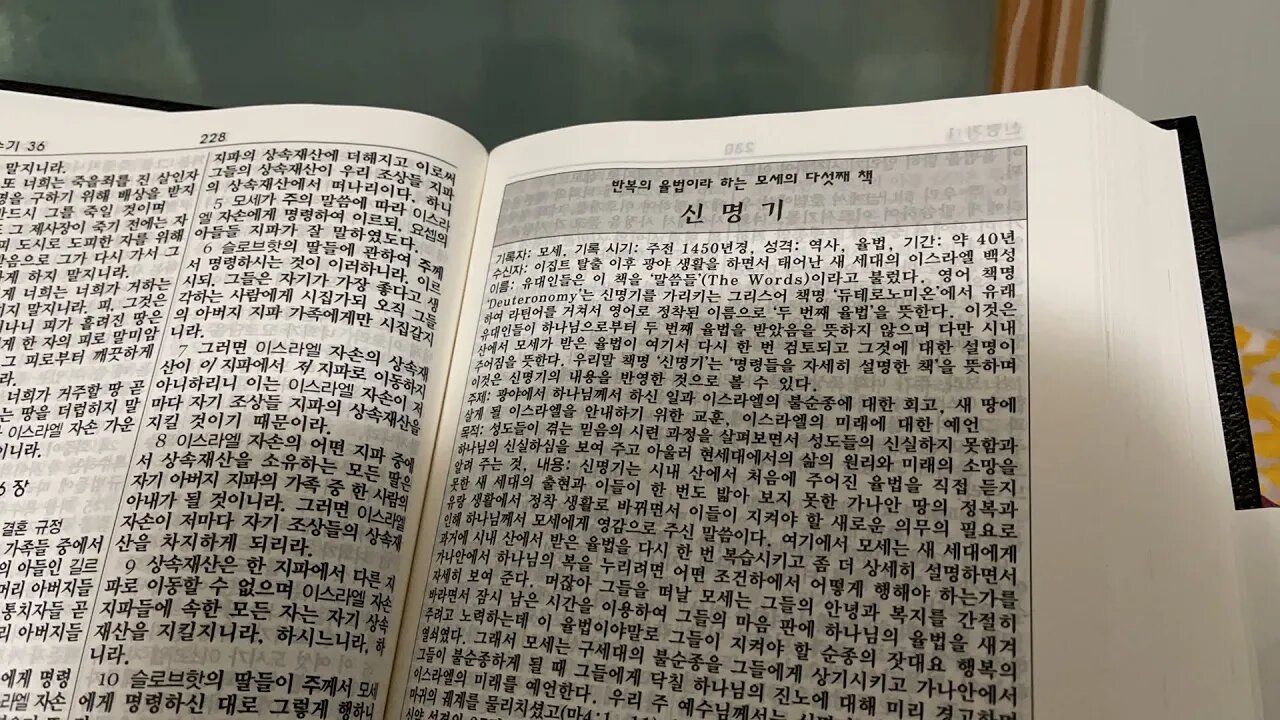 수기 36
228
말지니라.
또 너희는 죽을죄를 진 살인자
명을 구하기 위해 배상을 받지
반드시 그를 죽일 것이며
또 그 제사장이 죽기 전에는 자
피 도시로 도피한 자를 위해
받음으로 그가 다시 가서 그
하게 하지 말지니라.
게 너희는 너희가 거하는
지 말지니라. 피, 그것은
나니 피가 흘려진 땅은
게 한 자의 피로 말미암
그 피로부터 깨끗하게
라.
너희가 거주할 땅 곧
는 땅을 더럽히지 말
이스라엘 자손 가운
니라.
6 장
결혼 규정
가족들 중에서
의 아들인 길르
머리 아버지들
통치자들 곧
리 아버지들
에게 명령
스라엘 자손
지파의 상속재산에 더해지고 이로써
그들의 상속재산이 우리 조상들 지파
의 상속재산에서 떠나리이다, 하니
5 모세가 주의 말씀에 따라 이스라
엘 자손에게 명령하여 이르되, 요셉의
아들들 지파가 잘 말하였도다.
6 슬로브핫의 딸들에 관하여 주께
서 명령하시는 것이 이러하니라. 이르
시되, 그들은 자기가 가장 좋다고 생
각하는 사람에게 시집가되 오직 그들
의 아버지 지파 가족에게만 시집갈지
니라.
7 그러면 이스라엘 자손의 상속재
산이 이 지파에서 저 지파로 이동하지
아니하리니 이는 이스라엘 자손이 저
마다 자기 조상들 지파의 상속재산을
지킬 것이기 때문이라.
8 이스라엘 자손의 어떤 지파 중에
서 상속재산을 소유하는 모든 딸은
자기 아버지 지파의 가족 중 한 사람의
아내가 될 것이니라. 그러면 이스라엘
자손이 저마다 자기 조상들의 상속재
산을 차지하게 되리라.
9 상속재산은 한 지파에서 다른 지
파로 이동할 수 없으며 이스라엘 자손
지파들에 속한 모든 자는 자기 상속
재산을 지킬지니라, 하시느니라, 하
니라.
10 슬로브핫의 딸들이 주께서 모세
에게 명령하신 대로 그렇게 행하니
반복의 율법이라 하는 모세의 다섯째 책
신 명 기
기록자: 모세, 기록 시기: 주전 1450년경, 성격: 역사, 율법, 기간: 약 40년
수신자: 이집트 탈출 이후 광야 생활을 하면서 태어난 새 세대의 이스라엘 백성
이름: 유대인들은 이 책을 ‘말씀들’(The Words)이라고 불렀다. 영어 책명
‘Deuteronomy’는 신명기를 가리키는 그리스어 책명 ‘듀테로노미온’에서 유래
하여 라틴어를 거쳐서 영어로 정착된 이름으로 ‘두 번째 율법’을 뜻한다. 이것은
유대인들이 하나님으로부터 두 번째 율법을 받았음을 뜻하지 않으며 다만 시내
산에서 모세가 받은 율법이 여기서 다시 한 번 검토되고 그것에 대한 설명이
주어짐을 뜻한다. 우리말 책명 ‘신명기’는 ‘명령들을 자세히 설명한 책’을 뜻하며
이것은 신명기의 내용을 반영한 것으로 볼 수 있다.
주제: 광야에서 하나님께서 하신 일과 이스라엘의 불순종에 대한 회고, 새 땅에
살게 될 이스라엘을 안내하기 위한 교훈, 이스라엘의 미래에 대한 예언
목적: 성도들이 겪는 믿음의 시련 과정을 살펴보면서 성도들의 신실하지 못함과
하나님의 신실하심을 보여 주고 아울러 현세대에서의 삶의 원리와 미래의 소망을
알려 주는 것, 내용: 신명기는 시내 산에서 처음에 주어진 율법을 직접 듣지
못한 새 세대의 출현과 이들이 한 번도 밟아 보지 못한 가나안 땅의 정복과
유랑 생활에서 정착 생활로 바뀌면서 이들이 지켜야 할 새로운 의무의 필요로
인해 하나님께서 모세에게 영감으로 주신 말씀이다. 여기에서 모세는 새 세대에게
과거에 시내 산에서 받은 율법을 다시 한 번 복습시키고 좀 더 상세히 설명하면서
가나안에서 하나님의 복을 누리려면 어떤 조건하에서 어떻게 행해야 하는가를
자세히 보여 준다. 머잖아 그들을 떠날 모세는 그들의 안녕과 복지를 간절히
바라면서 잠시 남은 시간을 이용하여 그들의 마음 판에 하나님의 율법을 새겨
주려고 노력하는데 이 율법이야말로 그들이 지켜야 할 순종의 잣대요 행복의
열쇠였다. 그래서 모세는 구세대의 불순종을 그들에게 상기시키고 가나안에서
그들이 불순종하게 될 때 그들에게 닥칠 하나님의 진노에 대해 미리 경고하면서
이스라엘의 미래를 예언한다. 우리 주 예수님께서는
마귀의 궤계를 물리치셨고(마4:1-11)